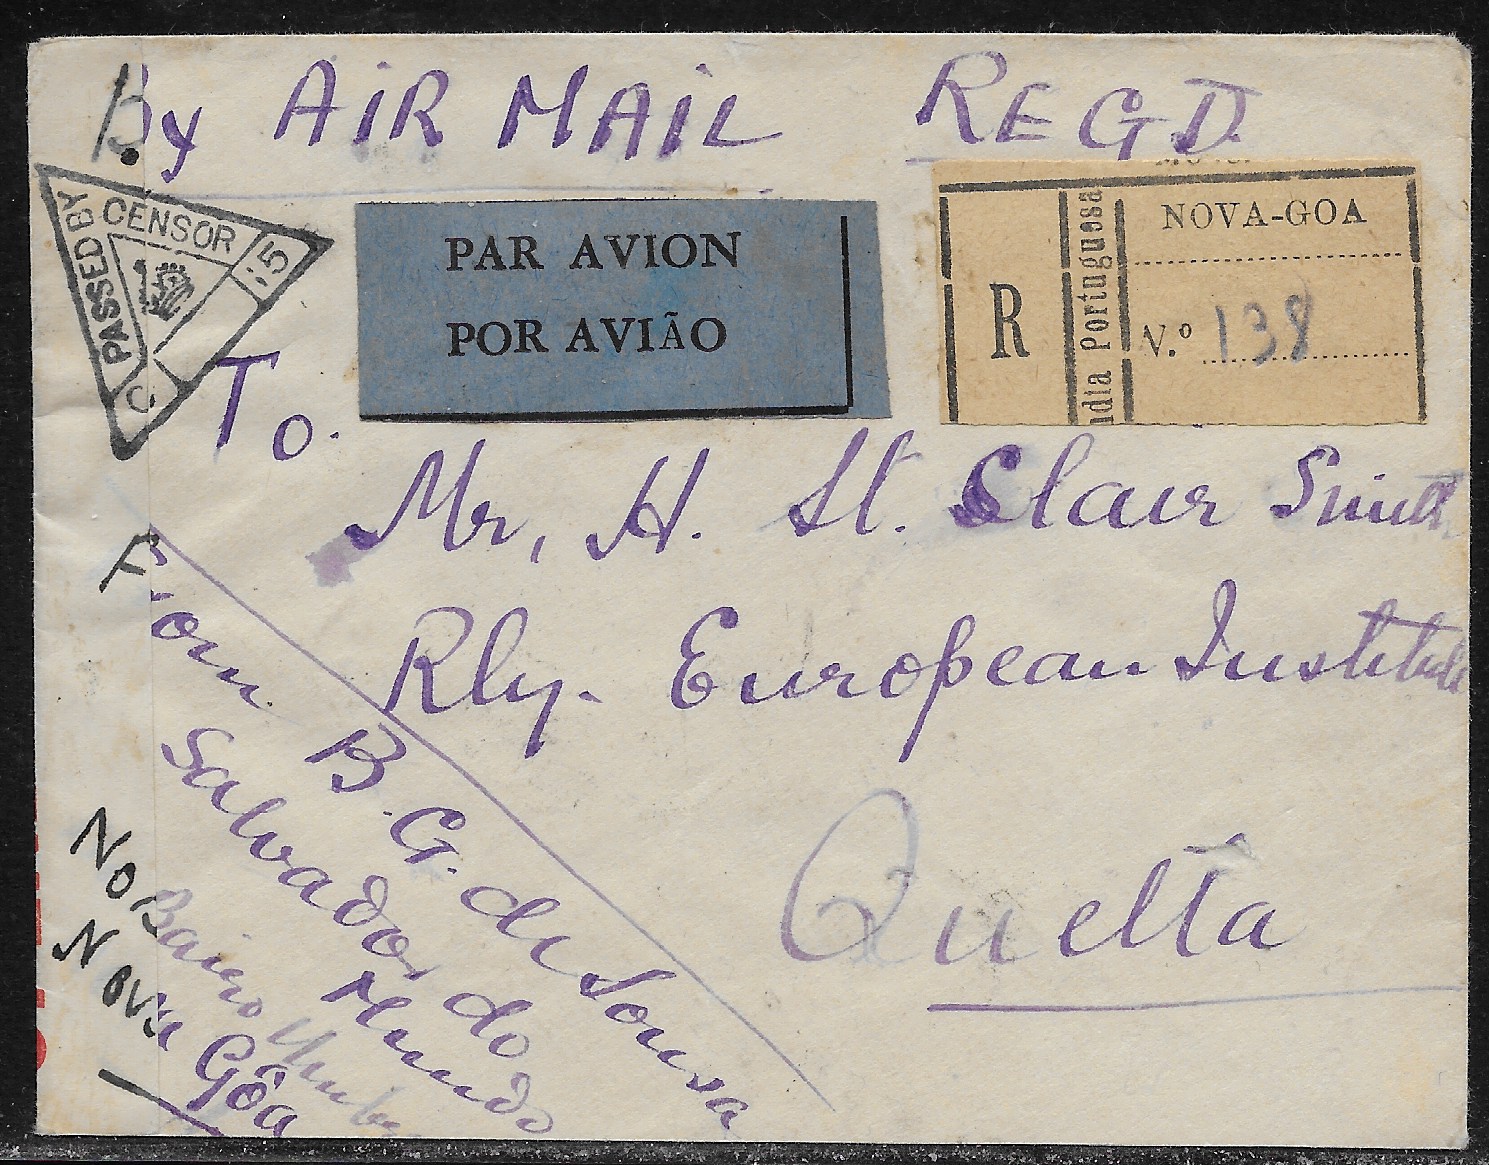 By AIR MAIL REGD.
PASSED BY
CENSOR
PAR AVION
POR AVIÃO
R
ndia Portuguesa
NOVA-GOA
N.º 138
To.
Mr, H. St. Clair Smith
Rly. European Institute
Quetta
From B. G. de Sousa
Salvador do
Mundo
No Bairo
Nova Gôa